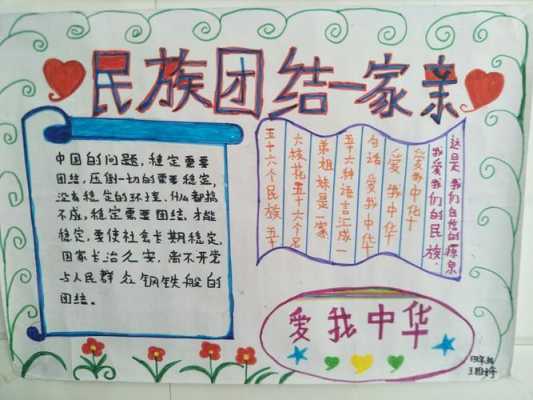 民族团结一家亲
中国的问题,稳定重要
团结,压倒一切的需要稳定,
没有稳定的环境,什么都搞
不成,稳定需要团结,才能
稳定,要使社会长期稳定,
国家长治久安,离不开党
与人民群众钢铁般的
团结。
五十六个民族 五十
六枝花五十六个兄
弟姐妹是一家
五十六种语言汇成一
句话 爱我中华
爱我中华
爱我中华
我爱我们的民族,
这是我们自信的源泉
爱我中华